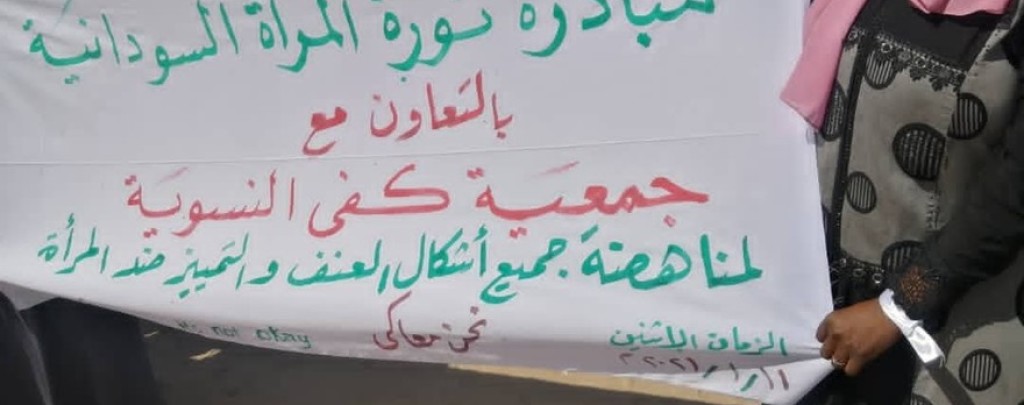 مبادرة ثورة المرأة السودانية
بالتعاون مع
جمعية كفى النسوية
لمناهضة جميع أشكال العنف والتمييز ضد المرأة
نحن معاكي
It's not okay
الزمان الإثنين